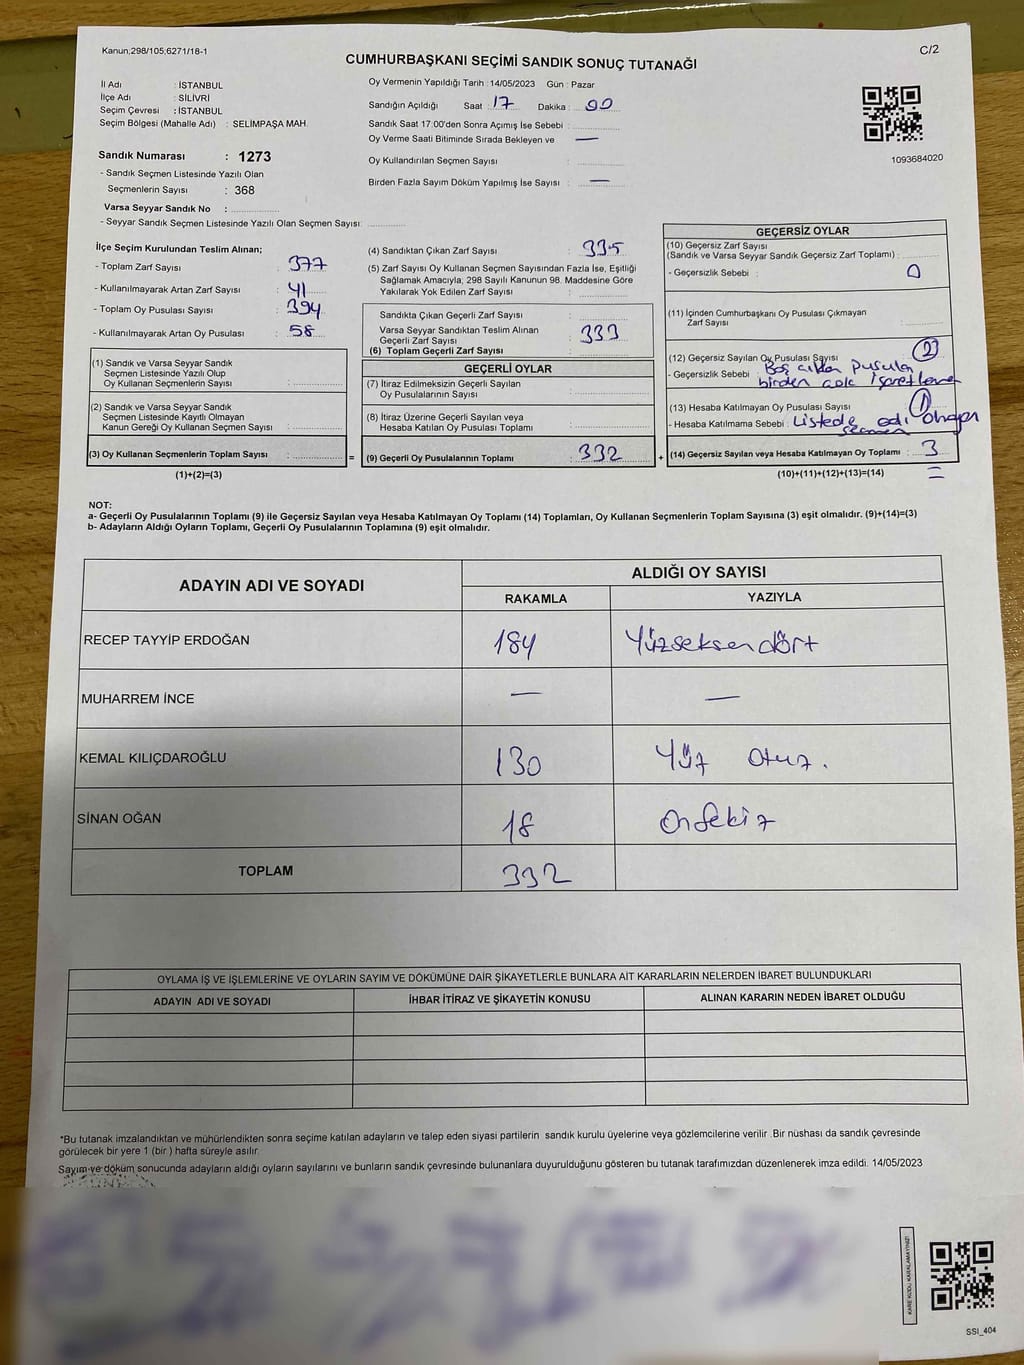 Kanun,298/105,6271/18-1
C/2
CUMHURBAŞKANI SEÇİMİ SANDIK SONUÇ TUTANAĞI
İl Adı : İSTANBUL
İlçe Adı : SİLİVRİ
Seçim Çevresi : İSTANBUL
Seçim Bölgesi (Mahalle Adı) : SELİMPAŞA MAH.
Sandık Numarası : 1273
- Sandık Seçmen Listesinde Yazılı Olan
Seçmenlerin Sayısı : 368
Varsa Seyyar Sandık No :
- Seyyar Sandık Seçmen Listesinde Yazılı Olan Seçmen Sayısı:
Oy Vermenin Yapıldığı Tarih : 14/05/2023 Gün : Pazar
Sandığın Açıldığı Saat : 17 Dakika : 00
Sandık Saat 17:00'den Sonra Açımış İse Sebebi :
Oy Verme Saati Bitiminde Sırada Bekleyen ve —
Oy Kullandırılan Seçmen Sayısı :
Birden Fazla Sayım Döküm Yapılmış İse Sayısı : —
1093684020
İlçe Seçim Kurulundan Teslim Alınan;
- Toplam Zarf Sayısı : 377
- Kullanılmayarak Artan Zarf Sayısı : 41
- Toplam Oy Pusulası Sayısı : 394
- Kullanılmayarak Artan Oy Pusulası : 58
(1) Sandık ve Varsa Seyyar Sandık
Seçmen Listesinde Yazılı Olup
Oy Kullanan Seçmenlerin Sayısı :
(2) Sandık ve Varsa Seyyar Sandık
Seçmen Listesinde Kayıtlı Olmayan
Kanun Gereği Oy Kullanan Seçmen Sayısı :
(3) Oy Kullanan Seçmenlerin Toplam Sayısı : =
(1)+(2)=(3)
(4) Sandıktan Çıkan Zarf Sayısı : 335
(5) Zarf Sayısı Oy Kullanan Seçmen Sayısından Fazla İse, Eşitliği
Sağlamak Amacıyla, 298 Sayılı Kanunun 98. Maddesine Göre
Yakılarak Yok Edilen Zarf Sayısı :
Sandıkta Çıkan Geçerli Zarf Sayısı :
Varsa Seyyar Sandıktan Teslim Alınan
Geçerli Zarf Sayısı : 333
(6) Toplam Geçerli Zarf Sayısı :
GEÇERLİ OYLAR
(7) İtiraz Edilmeksizin Geçerli Sayılan
Oy Pusulalarının Sayısı :
(8) İtiraz Üzerine Geçerli Sayılan veya
Hesaba Katılan Oy Pusulası Toplamı :
(9) Geçerli Oy Pusulalarının Toplamı : 332 +
GEÇERSİZ OYLAR
(10) Geçersiz Zarf Sayısı
(Sandık ve Varsa Seyyar Sandık Geçersiz Zarf Toplamı) :
- Geçersizlik Sebebi : 0
(11) İçinden Cumhurbaşkanı Oy Pusulası Çıkmayan
Zarf Sayısı :
(12) Geçersiz Sayılan Oy Pusulası Sayısı : 2
- Geçersizlik Sebebi Boş çıkan pusulan
birden çok işaretleme
(13) Hesaba Katılmayan Oy Pusulası Sayısı : 1
- Hesaba Katılmama Sebebi : Listede adı olmayan
seçmen
(14) Geçersiz Sayılan veya Hesaba Katılmayan Oy Toplamı : 3
(10)+(11)+(12)+(13)=(14)
NOT:
a- Geçerli Oy Pusulalarının Toplamı (9) ile Geçersiz Sayılan veya Hesaba Katılmayan Oy Toplamı (14) Toplamları, Oy Kullanan Seçmenlerin Toplam Sayısına (3) eşit olmalıdır. (9)+(14)=(3)
b- Adayların Aldığı Oyların Toplamı, Geçerli Oy Pusulalarının Toplamına (9) eşit olmalıdır.
ADAYIN ADI VE SOYADI
ALDIĞI OY SAYISI
RAKAMLA YAZIYLA
RECEP TAYYİP ERDOĞAN 184 Yüzseksendört
MUHARREM İNCE — —
KEMAL KILIÇDAROĞLU 130 Yüz otuz.
SİNAN OĞAN 18 Onsekiz
TOPLAM 332
OYLAMA İŞ VE İŞLEMLERİNE VE OYLARIN SAYIM VE DÖKÜMÜNE DAİR ŞİKAYETLERLE BUNLARA AİT KARARLARIN NELERDEN İBARET BULUNDUKLARI
ADAYIN ADI VE SOYADI İHBAR İTİRAZ VE ŞİKAYETİN KONUSU ALINAN KARARIN NEDEN İBARET OLDUĞU
*Bu tutanak imzalandıktan ve mühürlendikten sonra seçime katılan adayların ve talep eden siyasi partilerin sandık kurulu üyelerine veya gözlemcilerine verilir .Bir nüshası da sandık çevresinde
görülecek bir yere 1 (bir ) hafta süreyle asılır.
Sayım ve döküm sonucunda adayların aldığı oyların sayılarını ve bunların sandık çevresinde bulunanlara duyurulduğunu gösteren bu tutanak tarafımızdan düzenlenerek imza edildi. 14/05/2023
KARE KODU KARALAMAYINIZ!
SSI_404